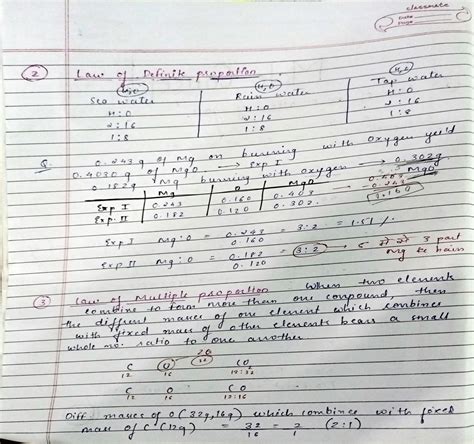 classmate
Date
Page
② Law of Definite proportion
H₂O H₂O H₂O
Sea water Rain water Tap water
H:O H:O H:O
2:16 2:16 2:16
1:8 1:8 1:8
Q. 0.243g of Mg on burning with oxygen yei'd
0.4030g of MgO → Exp. I
0.182g Mg burning with oxygen → 0.302g MgO
Mg O MgO
Exp. I 0.243 0.160 0.403
Exp. II 0.182 0.120 0.302.
0.403
-0.243
0.160
Exp I Mg:O = 0.243/0.160 = 3:2 = 1.51
Exp II Mg:O = 0.182/0.120 = 3:2 → 3 part Mg
③ Law of Multiple proportion When two elements
combine to form more than one compound, then
the diffrent masses of one element which combines
with fixed mass of other elements bears a small
whole no. ratio to one another
2O
32
C O CO
12 16 12:32
C O CO
12 16 12:16
Diff. masses of O (32g, 16g) which combines with fixed
mass of C (12g) = 32/16 = 2/1 (2:1)